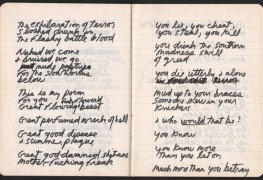 The exploration of terror
Naked we come
& bruised we go
For the slow worms
below
This is my poem
For you
Great perfumed wreck of hell
Great good disease
& summer plague
Great god-damned shit-ass
Mother-fucking freak
you lie, you cheat,
you steal, you kill
you drink the southern
madness swill
of greed
you die utterly & alone
Mud up to your braces
Someone new in your
knickers
& who would that be?
You know
You know more
Than you let on
Much more than you betray